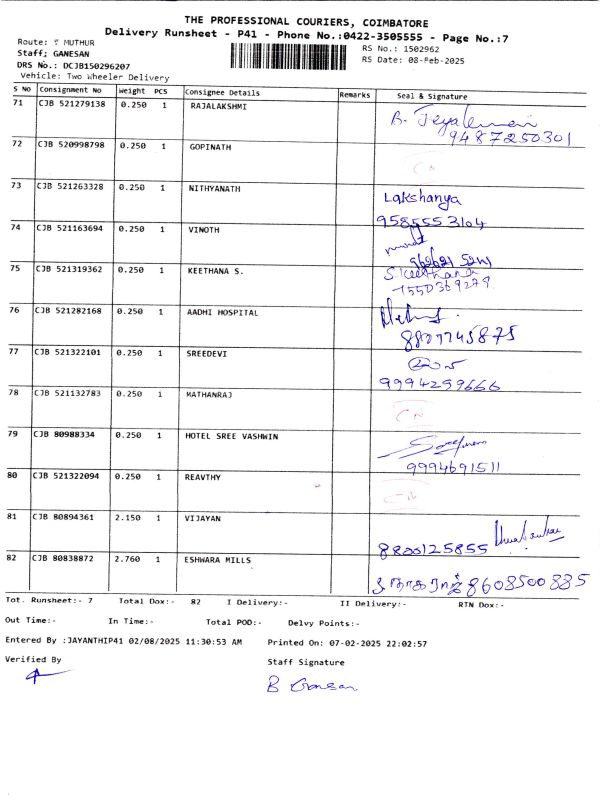 THE PROFESSIONAL COURIERS, COIMBATORE
Delivery Runsheet - P41 - Phone No.:0422-3505555 - Page No.:7
Route: T MUTHUR
Staff; GANESAN
DRS No.: DCJB150296207
Vehicle: Two Wheeler Delivery
RS No.: 1502962
RS Date: 08-Feb-2025
S No Consignment No Weight PCS Consignee Details Remarks Seal & Signature
71 CJB 521279138 0.250 1 RAJALAKSHMI B.
9487250301
72 CJB 520998798 0.250 1 GOPINATH CN
73 CJB 521263328 0.250 1 NITHYANATH Lakshanya
9585553104
74 CJB 521163694 0.250 1 VINOTH
75 CJB 521319362 0.250 1 KEETHANA S. S.Keethana
7550369279
76 CJB 521282168 0.250 1 AADHI HOSPITAL
8807745875
77 CJB 521322101 0.250 1 SREEDEVI
9994259666
78 CJB 521132783 0.250 1 MATHANRAJ CN
79 CJB 80988334 0.250 1 HOTEL SREE VASHWIN
9994691511
80 CJB 521322094 0.250 1 REAVTHY CN
81 CJB 80894361 2.150 1 VIJAYAN
8800125855
82 CJB 80838872 2.760 1 ESHWARA MILLS நாகராஜ் 8608500885
Tot. Runsheet:- 7 Total Dox:- 82 I Delivery:- II Delivery:- RTN Dox:-
Out Time:- In Time:- Total POD:- Delvy Points:-
Entered By :JAYANTHIP41 02/08/2025 11:30:53 AM Printed On: 07-02-2025 22:02:57
Verified By Staff Signature
B Ganesan